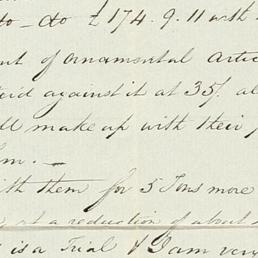 to - do £174.9.11 with
nt of ornamental artic
eid against it at 35/. al
ll make up with their
m. —
ith them for 5 Tons more
at a reduction of about
t is a Trial & I am very